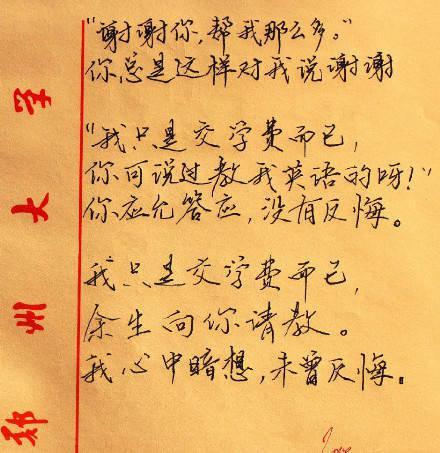 "谢谢你，帮我那么多。"
你总是这样对我说谢谢
"我只是交学费而已，
你可说过教我英语的呀！"
你应允答应，没有反悔。
我只是交学费而已，
余生向你请教。
我心中暗想，未曾反悔。
郑州大学